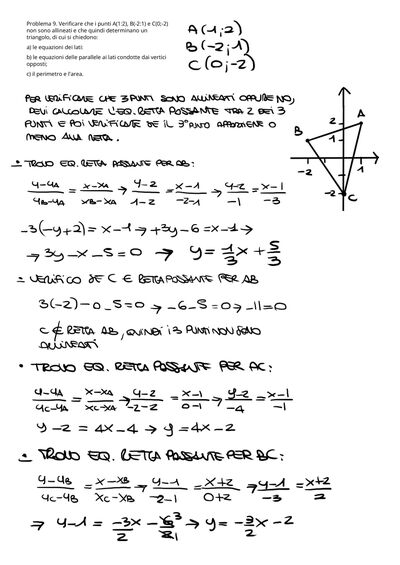 Problema 9. Verificare che i punti A(1;2), B(-2;1) e C(0;-2)
non sono allineati e che quindi determinano un
triangolo, di cui si chiedono:
a) le equazioni dei lati;
b) le equazioni delle parallele ai lati condotte dai vertici
opposti;
c) il perimetro e l'area.
A(1;2)
B(-2;1)
C(0;-2)
PER VERIFICARE CHE 3 PUNTI SONO ALLINEATI OPPURE NO,
DEVI CALCOLARE L'EQ. RETTA PASSANTE TRA 2 DEI 3
PUNTI E POI VERIFICARE SE IL 3° PUNTO APPARTIENE O
MENO ALLA RETTA.
A
B
C
2
1
-2
1
-2
• TROVO EQ. RETTA PASSANTE PER AB:
y-yA/yB-yA = x-xA/xB-xA → y-2/1-2 = x-1/-2-1 → y-2/-1 = x-1/-3
-3(-y+2) = x-1 → +3y-6 = x-1 →
→ 3y-x-5=0 → y = 1/3 x + 5/3
- VERIFICO SE C ∈ RETTA PASSANTE PER AB
3(-2)-0-5=0 → -6-5=0 → -11=0
C ∉ RETTA AB, QUINDI I 3 PUNTI NON SONO
ALLINEATI
• TROVO EQ. RETTA PASSANTE PER AC:
y-yA/yC-yA = x-xA/xC-xA → y-2/-2-2 = x-1/0-1 → y-2/-4 = x-1/-1
y-2 = 4x-4 → y = 4x-2
• TROVO EQ. RETTA PASSANTE PER BC:
y-yB/yC-yB = x-xB/xC-xB → y-1/-2-1 = x+2/0+2 → y-1/-3 = x+2/2
⇒ y-1 = -3x/2 - 6 3/2 1 → y = -3/2 x - 2